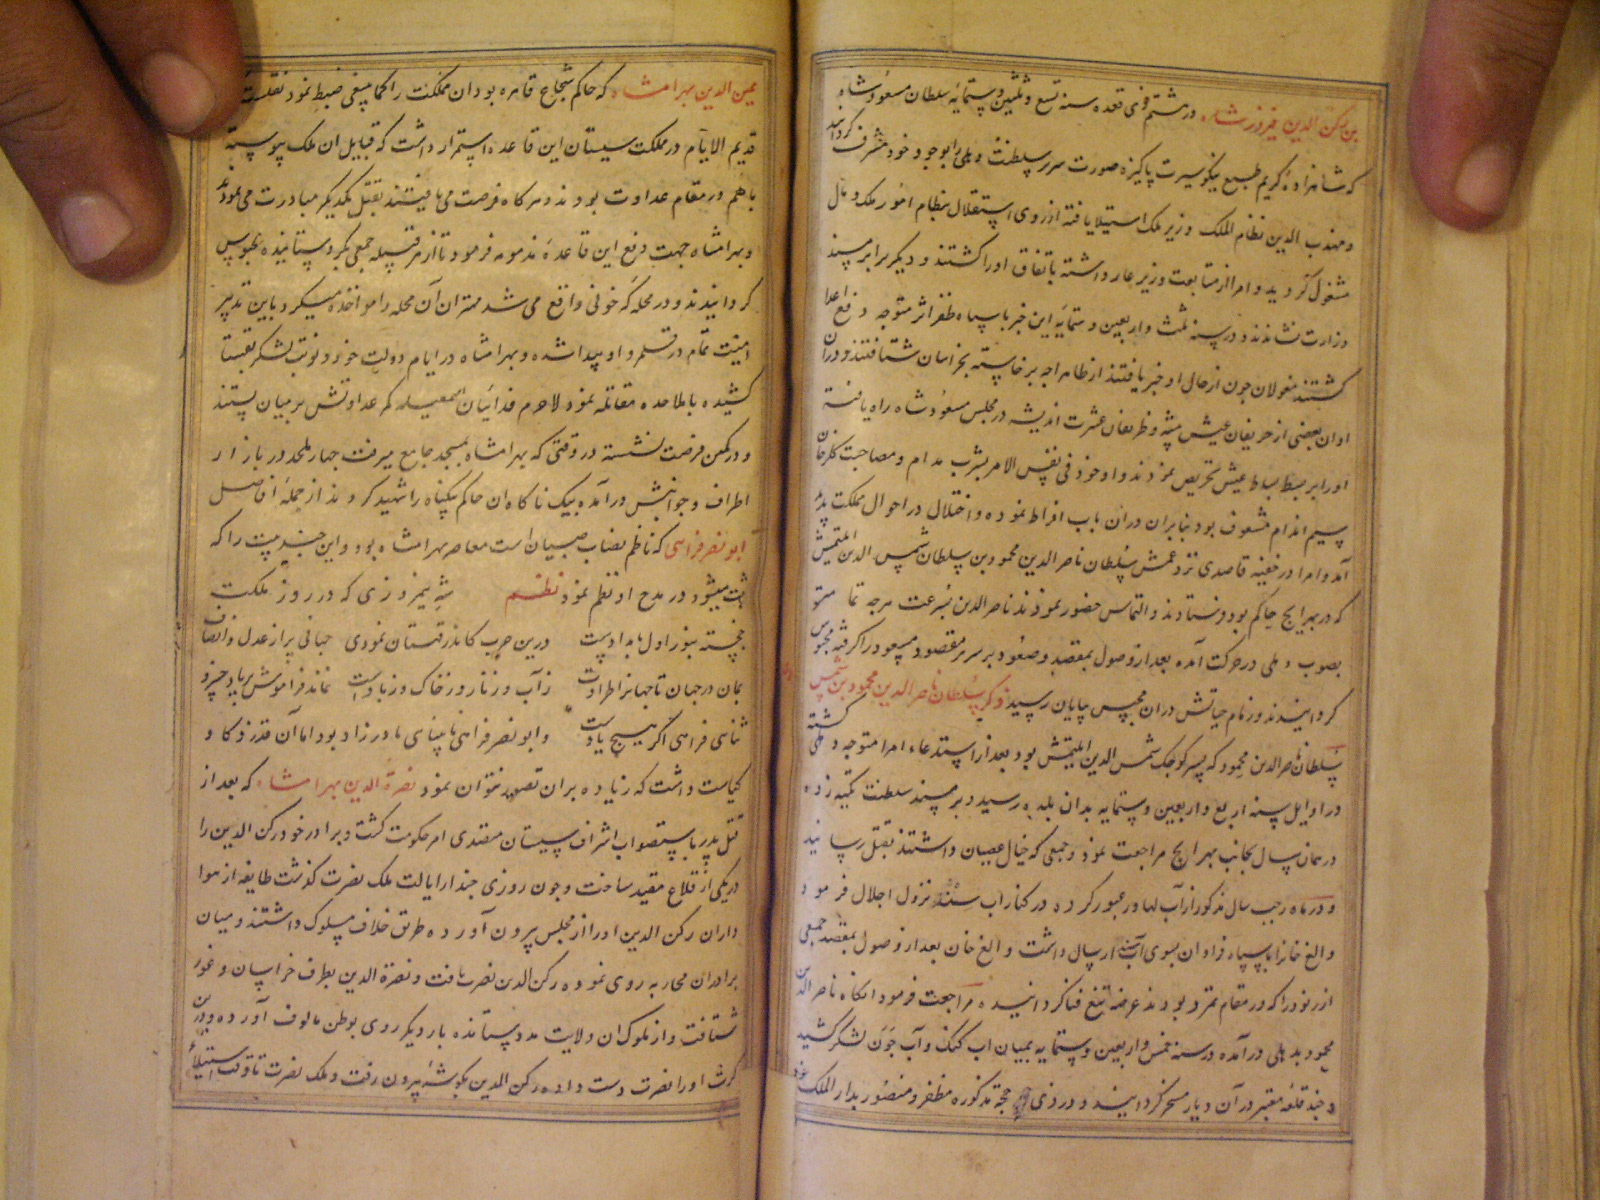 بن رکن الدین فیروز شاه در هشتم ذی قعده سنه تسع و ثلثین و ستمایه سلطان مسعود شاه
که شاهزاده کریم طبع نیکو سیرت پاکیزه صورت سریر سلطنت دهلی را بوجود خود مشرف گردانید
و مهذب الدین نظام الملک وزیر ملک استیلا یافته از روی استقلال بنظام امور ملک و مال
مشغول گردید و امرا از متابعت وزیر عار داشته باتفاق او را کشتند و دیگر برابر مسند
وزارت نشاندند و در سنه ثلث و اربعین و ستمایه این خبر با سپاه ظفر اثر متوجه دفع اعدا
گشتند مغولان چون از حال او خبر یافتند از ظاهر اجه برخاسته بخراسان شتافتند و دران
اوان بعضی از حریفان عیش پیشه و ظریفان عشرت اندیشه در مجلس مسعود شاه راه یافته
او را بر ضبط بساط عیش تحریص نمودند و او خود فی نفس الامر بشرب مدام و مصاحبت گلرخان
سیم اندام مشعوف بود بنابران دران باب افراط نموده و اختلال در احوال مملکت پدید
آمد و امرا در خفیه قاصدی نزد عمش سلطان ناصر الدین محمود بن سلطان شمس الدین التمش
که در بهرایج حاکم بود فرستادند و التماس حضور نمودند ناصر الدین بسرعت هرچه تمامتر
بصوب دهلی در حرکت آمده بعد از وصول بمقصد و صعود بر سریر مقصود مسعود را گرفته محبوس
گردانیدند و زمام حیاتش دران محبس بپایان رسید ذکر سلطان ناصر الدین محمود بن شمس
سلطان ناصر الدین محمود که پسر کوچک شمس الدین التمش بود بعد از استدعاء امرا متوجه دهلی گشته
در اوایل سنه اربع و اربعین و ستمایه بدان بلده رسید و بر مسند سلطنت تکیه زده
در همان سال بجانب بهرایج مراجعت نمود و جمعی که خیال عصیان داشتند بقتل رسانید
و در ماه رجب سال مذکور از آب لهاور عبور کرده در کنار آب سند نزول اجلال فرمود
و الغ خان را با سپاه فراوان بسوی ارسال داشت و الغ خان بعد از وصول بمقصد جمعی
از رنود را که در مقام تمرد بودند عرضه تیغ فنا گردانیده مراجعت فرمود انگاه ناصر الدین
محمود بدهلی درآمده در سنه خمس و اربعین و ستمایه بمیان آب گنگ و آب جون لشکر کشید
و چند قلعه معتبر در آن دیار مسخر گردانید و در ذی حجه مذکوره مظفر و منصور بدار الملک
یمین الدین بهرامشاه که حاکم شجاع قاهر بود ان مملکت را کما ینبغی ضبط نمود نقلست
قدیم الایام در مملکت سیستان این قاعده استمرار داشت که قبایل ان ملک پیوسته
باهم در مقام عداوت بودند و هرگاه فرصت می یافتند بقتل یکدیگر مبادرت می نمودند
و بهرامشاه جهت دفع این قاعده مذمومه فرمود تا از هر قبیله جمعی بگرو ستانیده محبوس
گردانیدند و در محله که خونی واقع می شد مهتران آن محله را مواخذه میکرد باین تدبیر
امنیت تمام در قلمرو او پیدا شده و بهرامشاه در ایام دولت خود دو نوبت لشکر بقهستا
کشیده با ملاحده مقاتله نمود لاجرم فدائیان اسمعیلیه کمر عداوتش بر میان بستند
و در کمین فرصت نشسته در وقتی که بهرامشاه بمسجد جامع میرفت چهار ملحد در بازار
اطراف و جوانبش درآمده بیک ناگاه ان حاکم بیگناه را شهید کردند از جمله افاضل
ابو نصر فراهی که ناظم نصاب صبیان است معاصر بهرامشاه بود و این چند بیت را که
ثبت میشود در مدح او نظم نمود نظم شه نیمروزی که در روز ملکت
خجسته هنوز اول بامدادست درین حرب کاندر قهستان نمودی جهانی پر از عدل و انصاف
بمان در جهان تا جهانرا طراوت ز آب و ز نار و ز خاک و ز بادست نماند فراموش بر یاد خسرو
ثنای فراهی اگر هیچ یادست و ابو نصر فراهی نابینای مادرزاد بود اما آن قدر ذکا و
کیاست داشت که زیاده بران تصور نتوان نمود نصرة الدین بهرامشاه که بعد از
قتل پدر باستصواب اشراف سیستان متصدی امر حکومت گشت و برادر خود رکن الدین را
در یکی از قلاع مقید ساخت و چون روزی چند از ایالت ملک نصرت گذشت طایفه از هوا
داران رکن الدین او را از مجلس بیرون آورده طریق خلاف مسلوک داشتند و میان
برادران محاربه روی نموده رکن الدین نصرت یافت و نصرة الدین بطرف خراسان و غور
شتافت و از ملوک ان ولایت مدد ستانده بار دیگر روی بوطن مالوف آورده و درین
کرت او را نصرت دست داده رکن الدین بگوشه بیرون رفت و ملک نصرت تا وقت استیلاء